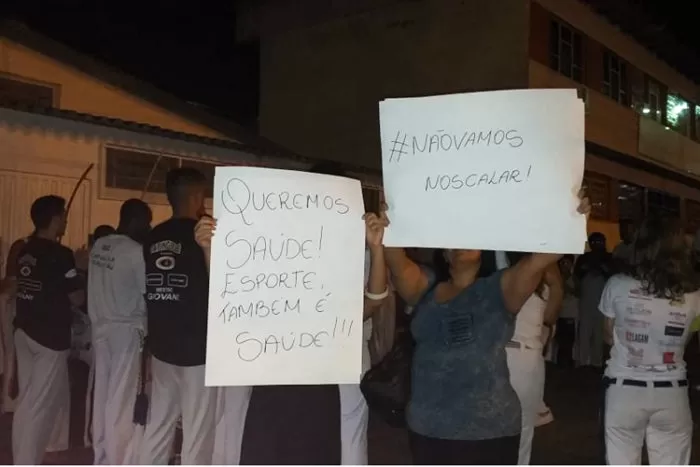 QUEREMOS
SAÚDE!
ESPORTE,
TAMBEM É
SAÚDE!!!
#NÃOVAMOS
NOSCALAR!
GIOVANI